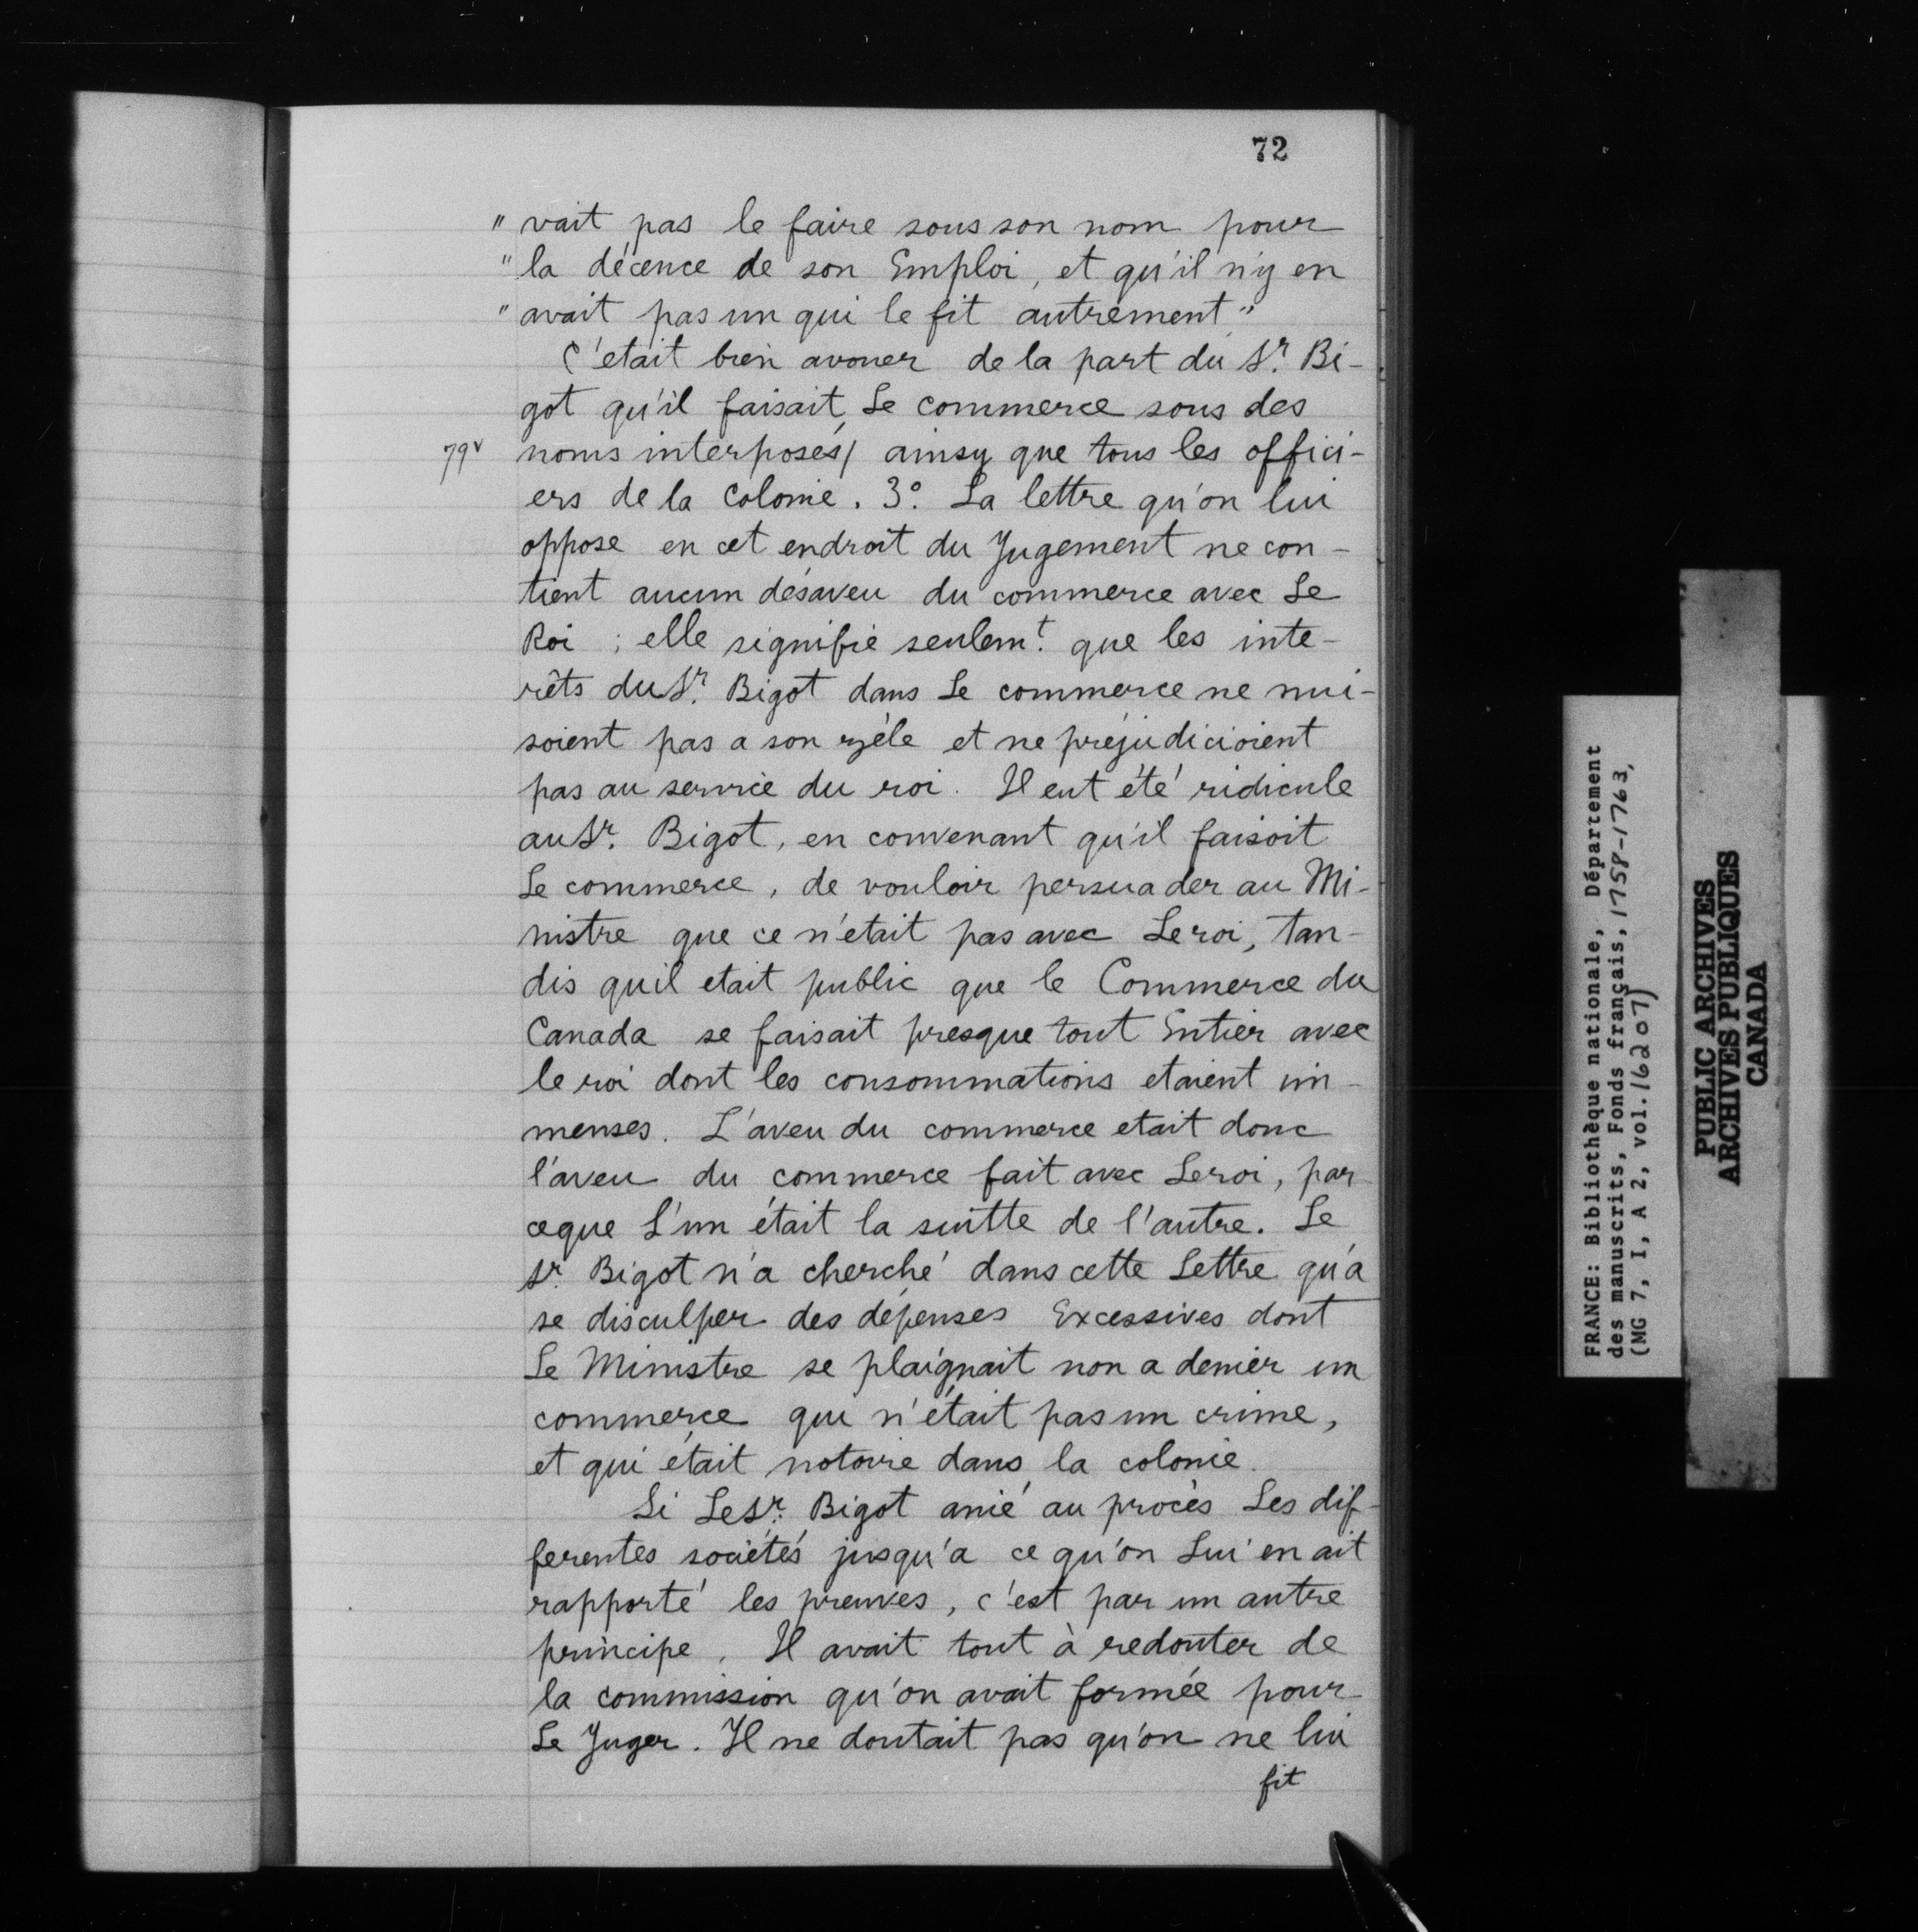 72
" vait pas le faire sous son nom pour
" la décence de son Emploi, et qu'il n'y en
" avait pas un qui le fit autrement"
C'etait bien avouer de la part du Sr. Bi-
got qu'il faisait Le commerce sous des
79v noms interposés/ ainsy que tous les offici-
ers de la Colonie. 3°. La lettre qu'on lui
oppose en cet endroit du Jugement ne con-
tient aucun désaveu du commerce avec Le
Roi ; elle signifie seulemt. que les inte-
rêts du Sr. Bigot dans Le commerce ne nui-
soient pas a son zéle et ne prejudicioient
pas au service du roi. Il eut été ridicule
au Sr. Bigot, en convenant qu'il faisoit
Le commerce, de vouloir persuader au Mi-
nistre que ce n'était pas avec Le roi, tan-
dis qu'il etait public que le Commerce du
Canada se faisait presque tout Entier avec
le roi dont les consommations etaient im-
menses. L'aveu du commerce etait donc
l'aveu du commerce fait avec Le roi, par
ceque L'un était la suitte de l'autre. Le
Sr. Bigot n'a cherché dans cette Lettre qu'à
se disculper des dépenses Excessives dont
Le Ministre se plaignait non a denier un
commerce qui n'était pas un crime,
et qui était notoire dans la colonie.
Si Le Sr. Bigot a nié au procès Les dif-
ferentes sociétés jusqu'a ce qu'on Lui en ait
rapporté les preuves, c'est par un autre
principe. Il avait tout à redouter de
la commission qu'on avait formée pour
Le Juger. Il ne doutait pas qu'on ne lui
fit
FRANCE: Bibliothèque nationale, Département
des manuscrits, Fonds français, 1758-1763,
(MG 7, I, A 2, vol. 16207)
PUBLIC ARCHIVES
ARCHIVES PUBLIQUES
CANADA